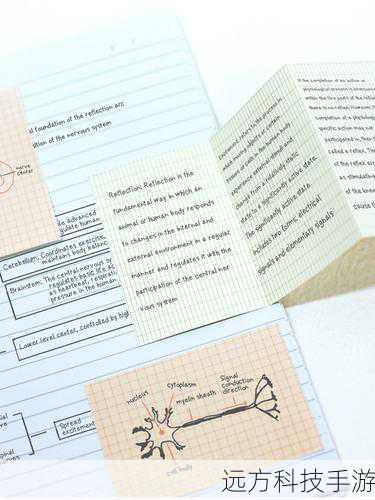 al foundation of the reflection arc
ation of the nervous system
nerve
center
de advanced
gulate human
Cerebellum. Coordinates exercise,
maintains body balanc
Brainstem. The central nervous sy
regulates basic life ac
as heartbeat, respirati
pressure in the human
Lower level center, controlled by high
Spread
excitement
Reflection. Reflection is the
fundamental way in which an
animal or human body responds
to changes in the internal and
external environment in a regular
manner and regulates it with the
participation of the central ner
vous system
which causes
tissues or cells in the human body
experience external stimuli and
change from a relatively static
state to a significantly active state.
The significantly active state
includes two forms: electrical
signals and elementary signals
If the completion of an action or
physiological process is
within the five parts of the reflex
there is no reflex. However, if
completion of a physiological
specific action may not
participated in by the
called a reflex. The
of the reflex arc
as stimulating
the
cause
nucleus
Cytoplasm
myelin sheath
Signal
conduction
direction
cell body
远方科技手游